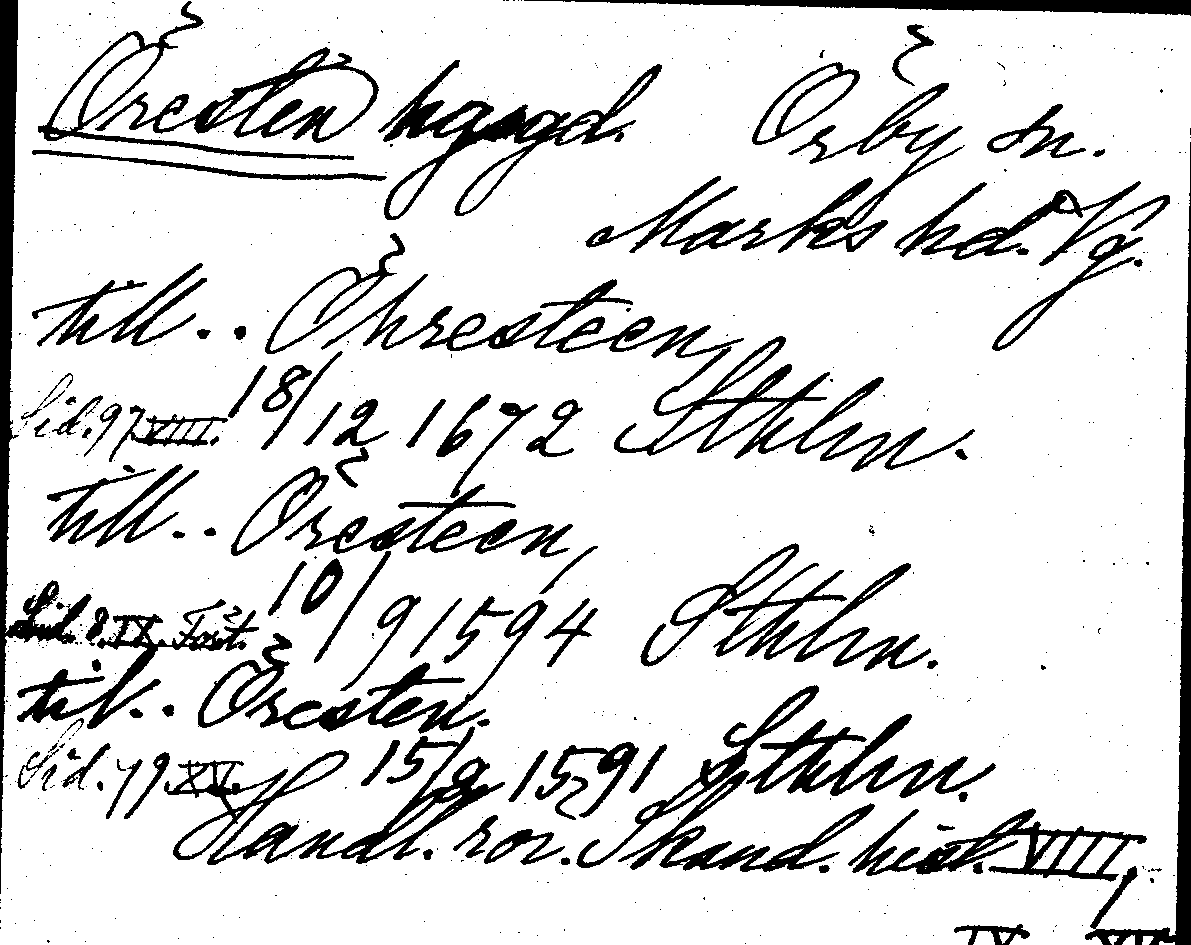 Öresten hgsgd. Örby sn.
Marks hd. Vg.
till.. Öhresteen,
Sid. 97 VIII. 18/12 1672 Sthlm.
till.. Öresteen,
Sid. 8. IX. Forts. 10/9 1594 Sthlm.
till.. Öresten.
Sid. 79 XV. 15/9 1591 Sthlm.
Handl. rör. Skand. hist. VIII,
IX